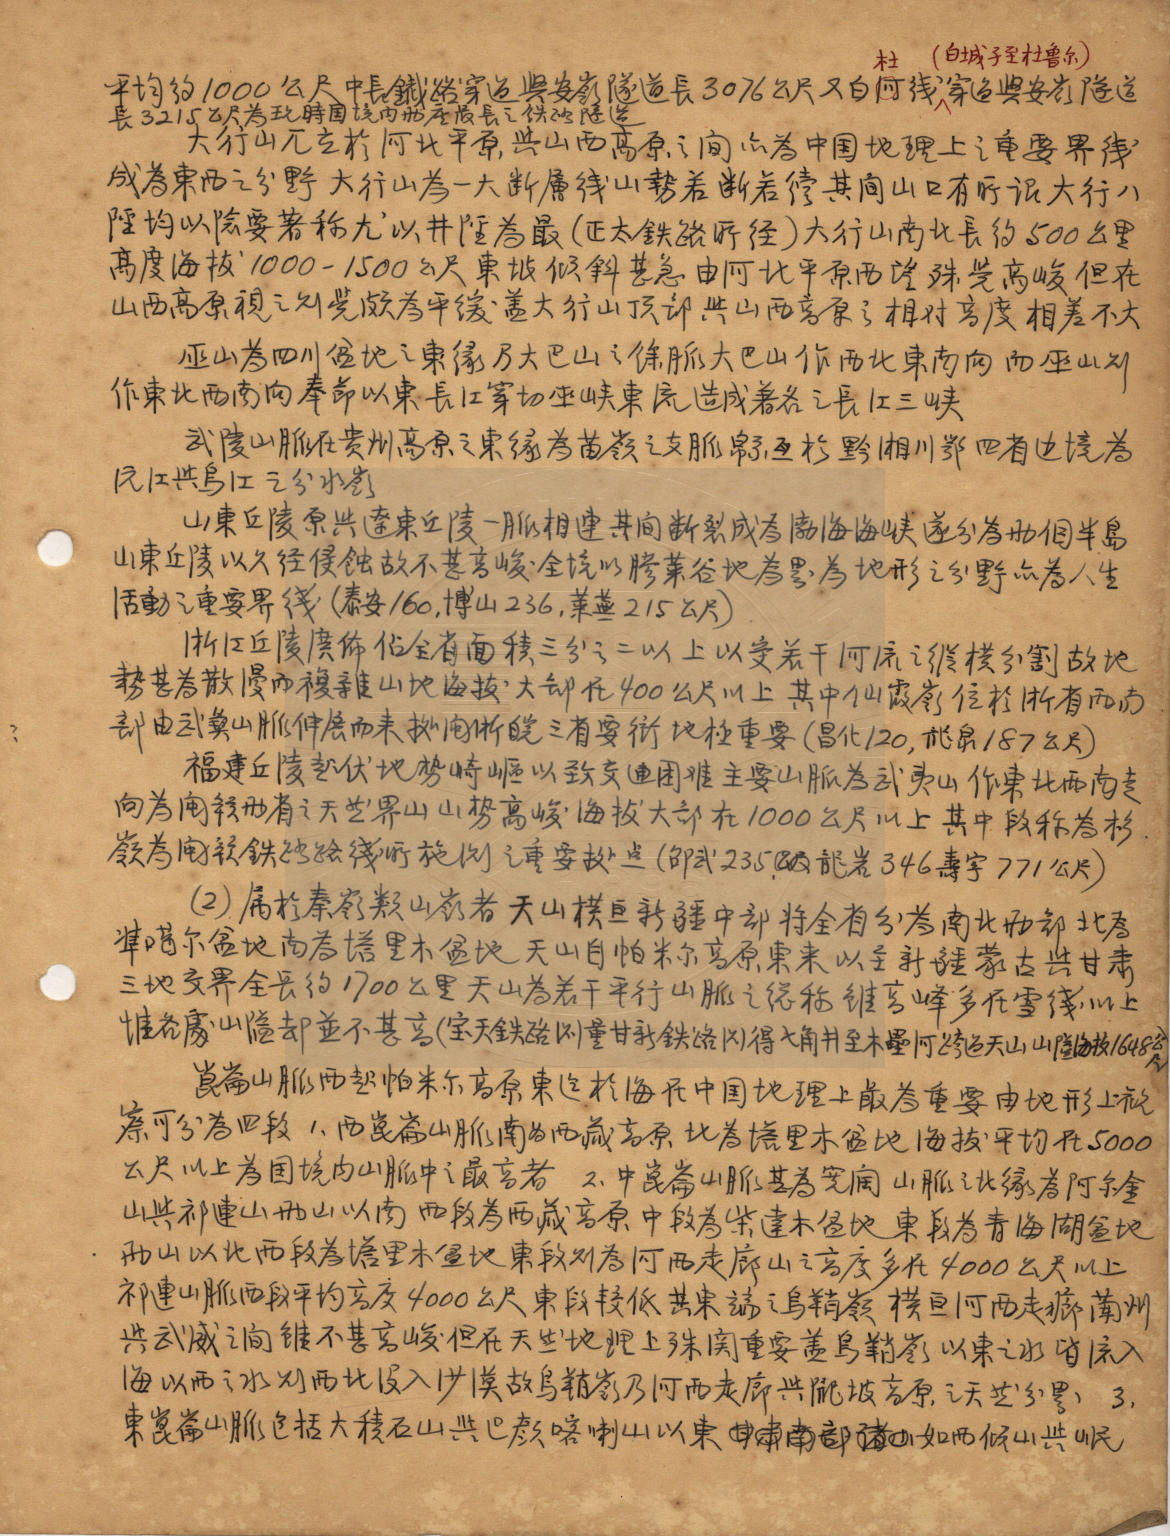 杜 (白城子至杜魯尔)
平均約1000公尺 中長鐵路穿過興安嶺隧道長3076公尺 又白阿线穿過興安嶺隧道
長3215公尺為 時国境内 最長之铁路隧道
大行山兀立於河北平原与山西高原之间 亦為中国地理上之重要界线
成為東西之分野 大行山為一大断層线 山势若断若续 其间山口有所謂大行八
陘均以险要著称 尤以井陘為最(正太鉄路所径) 大行山南北長約500公里
高度海拔1000-1500公尺 東坡傾斜甚急 由河北平原西望 殊觉高峻 但在
山西高原視之则觉颇為平缓 盖大行山顶部与山西高原之相对高度相差不大
巫山為四川盆地之東缘 乃大巴山之馀脈 大巴山作西北東南向 而巫山则
作東北西南向 奉節以東長江穿切巫峡東流 造成著名之長江三峡
武陵山脈在贵州高原之東缘 為苗嶺之支脈 绵亘於黔湘川鄂四省边境 為
沅江与烏江之分水嶺
山東丘陵原与遼東丘陵一脈相連 其间断裂成為渤海海峡 遂分為两個半島
山東丘陵以久经侵蚀 故不甚高峻 全境以膠莱谷地為界 為地形之分野 亦為人生
活動之重要界线 (泰安160,博山236,莱蕪215公尺)
浙江丘陵廣佈 佔全省面積三分之二以上 以受若干河流之縱横分割 故地
势甚為散漫而複雜 山地海拔大部在400公尺以上 其中仙霞嶺位於浙省西南
部 由武夷山脈伸展而来 拠闽浙皖三省要衝 地極重要 (昌化120, 龍泉187公尺)
福建丘陵起伏 地势崎嶇 以致交通困难 主要山脈為武夷山 作東北西南走
向 為闽赣两省之天然界山 山势高峻 海拔大部在1000公尺以上 其中段称為杉
嶺 為闽赣鉄路路线所施测之重要拠点 (邵武235, 龍岩346 壽宁771公尺)
(2) 属於秦嶺類山嶺者 天山横亘新疆中部 将全省分為南北两部 北為
準噶尔盆地 南為塔里木盆地 天山自帕米尔高原東来 以至新疆蒙古与甘肃
三地交界 全長約1700公里 天山為若干平行山脈之総称 雖高峰多在雪线以上
惟各處山隘却並不甚高(宝天鉄路测量甘新鉄路测得七角井至木壘河跨过天山山隘海拔1648公尺
崑崙山脈西起帕米尔高原 東迄於海 在中国地理上最為重要 由地形上視
察可分為四段 1、西崑崙山脈 南為西藏高原 北為塔里木盆地 海拔平均在5000
公尺以上 為国境内山脈中之最高者 2、中崑崙山脈甚為宽阔 山脈之北缘為阿尔金
山与祁連山 两山以南 西段為西藏高原 中段為柴達木盆地 東段為青海湖盆地
两山以北 西段為塔里木盆地 東段则為河西走廊 山之高度多在4000公尺以上
祁連山脈西段平均高度4000公尺 東段較低 其東端之烏鞘嶺 横亘河西走廊 蘭州
与武威之间 雖不甚高峻 但在天然地理上殊関重要 盖烏鞘嶺以東之水皆流入
海 以西之水则西北没入沙漠 故烏鞘嶺乃河西走廊与隴坡高原之天然分界 3、
東崑崙山脈包括大積石山与巴颜喀喇山以東 甘肃南部諸山如西倾山与岷